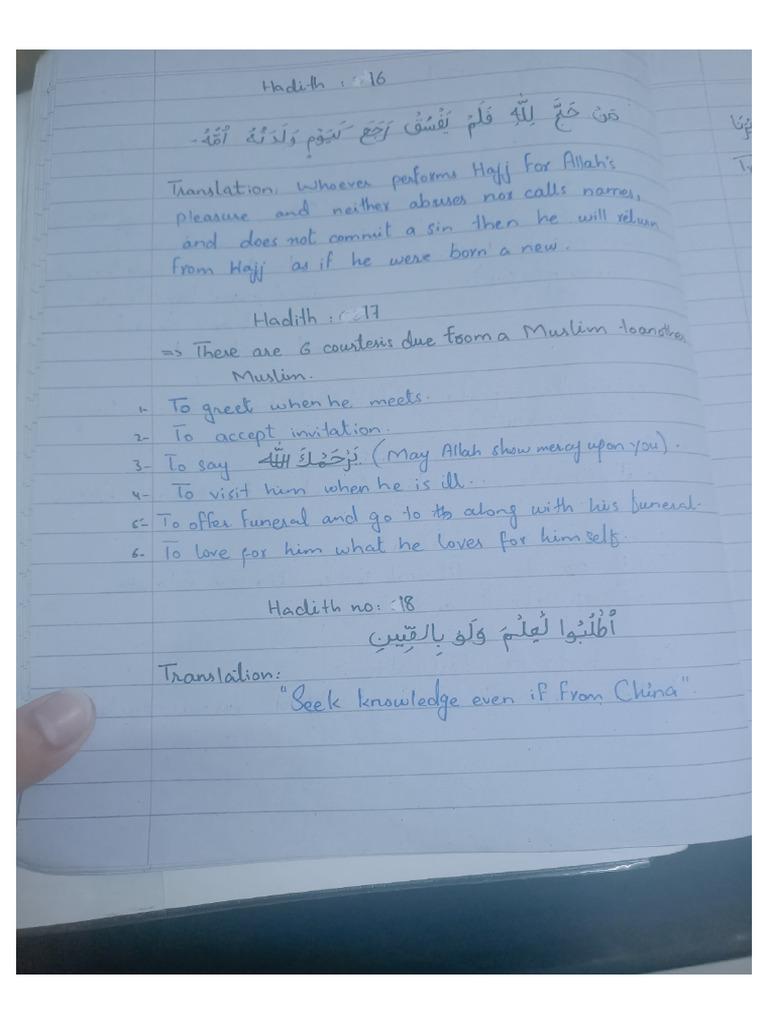 Hadith : 16
مَنْ حَجَّ لِلّٰهِ فَلَمْ يَفْسُقْ رَجَعَ كَيَوْمٍ وَلَدَتْهُ اُمُّهُ -
Translation. Whoever performs Hajj for Allah's
pleasure and neither abuses nor calls names,
and does not commit a sin then he will return
from Hajj as if he were born a new.
Hadith : 17
=> There are 6 courtesis due from a Muslim to another
Muslim.
1- To greet when he meets.
2- To accept invitation.
3- To say يَرْحَمُكَ اللّٰه (May Allah show mercy upon you).
4- To visit him when he is ill.
5- To offer funeral and go to along with his funeral.
6- To love for him what he loves for himself.
Hadith no: 18
اُطْلُبُوا لْعِلْمَ وَلَوْ بِالصِّينِ
Translation:
"Seek knowledge even if from China".